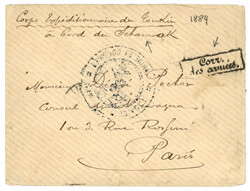 Corps Expéditionnaire du Tonkin
1884
à bord du Schamrock
Corr.
des armées.
Monsieur D. Pector
Consul de Nicaragua
1 ou 3 Rue Rossini
Paris